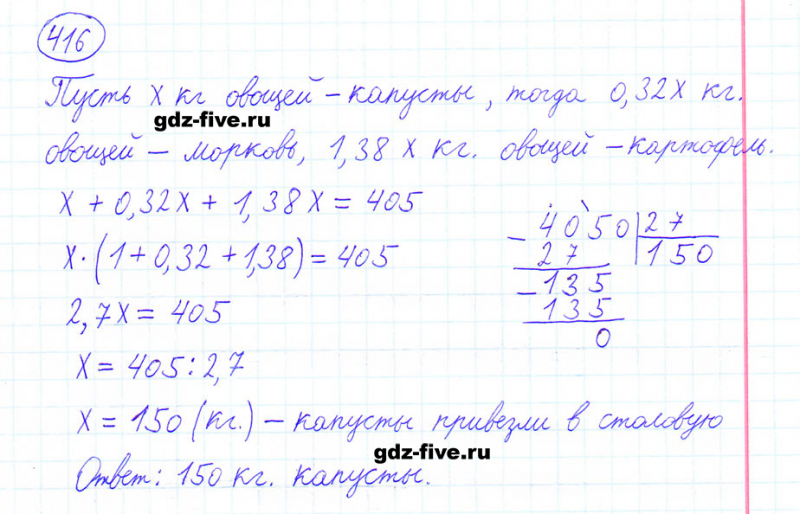 416
Пусть x кг овощей - капусты, тогда 0,32x кг.
gdz-five.ru
овощей - морковь, 1,38x кг. овощей - картофель.
x + 0,32x + 1,38x = 405
x·(1+0,32+1,38)=405
2,7x = 405
x = 405:2,7
x = 150 (кг.) - капусты привезли в столовую
gdz-five.ru
Ответ: 150 кг. капусты.
- 4050 | 27
27 | 150
- 135
135
0